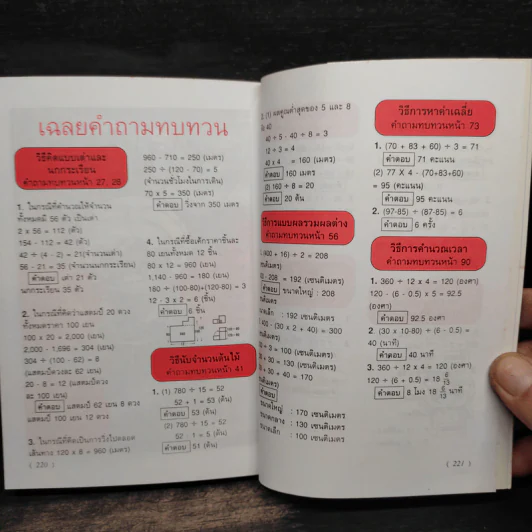 เฉลยคำถามทบทวน
วิธีคิดแบบเต่าและ
นกกระเรียน
คำถามทบทวนหน้า 27, 28
1. ในกรณีที่คำนวณให้จำนวน
ทั้งหมดมี 56 ตัว เป็นเต่า
2 x 56 = 112 (ตัว)
154 - 112 = 42 (ตัว)
42 ÷ (4 - 2) = 21(จำนวนเต่า)
56 - 21 = 35 (จำนวนนกกระเรียน)
คำตอบ เต่า 21 ตัว
นกกระเรียน 35 ตัว
2. ในกรณีที่คิดว่าแสตมป์ 20 ดวง
ทั้งหมดราคา 100 เยน
100 x 20 = 2,000 (เยน)
2,000 - 1,696 = 304 (เยน)
304 ÷ (100 - 62) = 8
(แสตมป์ดวงละ 62 เยน)
20 - 8 = 12 (แสตมป์ดวง
ละ 100 เยน)
คำตอบ แสตมป์ 62 เยน 8 ดวง
แสตมป์ 100 เยน 12 ดวง
3. ในกรณีที่คิดเป็นการวิ่งไปตลอด
เส้นทาง 120 x 8 = 960 (เมตร)
( 220 )
960 - 710 = 250 (เมตร)
250 ÷ (120 - 70) = 5
(จำนวนชั่วโมงในการเดิน)
70 x 5 = 350 (เมตร)
คำตอบ วิ่งจาก 350 เมตร
4. ในกรณีที่ซื้อเค้กราคาชิ้นละ
80 เยนทั้งหมด 12 ชิ้น
80 x 12 = 960 (เยน)
1,140 - 960 = 180 (เยน)
180 ÷ (100-80)+(120-80) = 3
12 - 3 x 2 = 6 (ชิ้น)
คำตอบ 6 ชิ้น
วิธีนับจำนวนต้นไม้
คำถามทบทวนหน้า 41
1. (1) 780 ÷ 15 = 52
52 + 1 = 53 (ต้น)
คำตอบ 53 (ต้น)
(2) 780 ÷ 15 = 52
52 - 1 = 5 (ต้น)
คำตอบ 51 (ต้น)
(1) ผลคูณต่ำสุดของ 5 และ 8
40
40 ÷ 5 - 40 ÷ 8 = 3
12 ÷ 3 = 4
40 x 4 = 160 (เมตร)
คำตอบ 160 เมตร
(2) 160 ÷ 8 = 20
คำตอบ 20 ต้น
วิธีการแบบผลรวมผลต่าง
คำถามทบทวนหน้า 56
(400 + 16) ÷ 2 = 208
ซนติเมตร)
- 208 = 192 (เซนติเมตร)
คำตอบ ขนาดใหญ่ : 208
ซนติเมตร
นาดเล็ก : 192 เซนติเมตร
400 - (30 x 2 + 40) = 300
ซนติเมตร)
÷ 3 = 100 (เซนติเมตร)
+ 30 = 130 (เซนติเมตร)
+ 30 + 40 = 170
คำตอบ
ขนาดใหญ่ : 170 เซนติเมตร
ขนาดกลาง : 130 เซนติเมตร
ขนาดเล็ก : 100 เซนติเมตร
วิธีการหาค่าเฉลี่ย
คำถามทบทวนหน้า 73
1. (70 + 83 + 60) ÷ 3 = 71
คำตอบ 71 คะแนน
(2) 77 X 4 - (70+83+60)
= 95 (คะแนน)
คำตอบ 95 คะแนน
2. (97-85) ÷ (87-85) = 6
คำตอบ 6 ครั้ง
วิธีการคำนวณเวลา
คำถามทบทวนหน้า 90
1. 360 ÷ 12 x 4 = 120 (องศา)
120 - (6 - 0.5) x 5 = 92.5
(องศา)
คำตอบ 92.5 องศา
2. (30 x 10-80) ÷ (6 - 0.5) =
40 (นาที)
คำตอบ 40 นาที
3. 360 ÷ 12 x 4 = 120 (องศา)
120 ÷ (6 + 0.5) = 18 6/13
คำตอบ 8 โมง 18 6/13 นาที
( 221 )